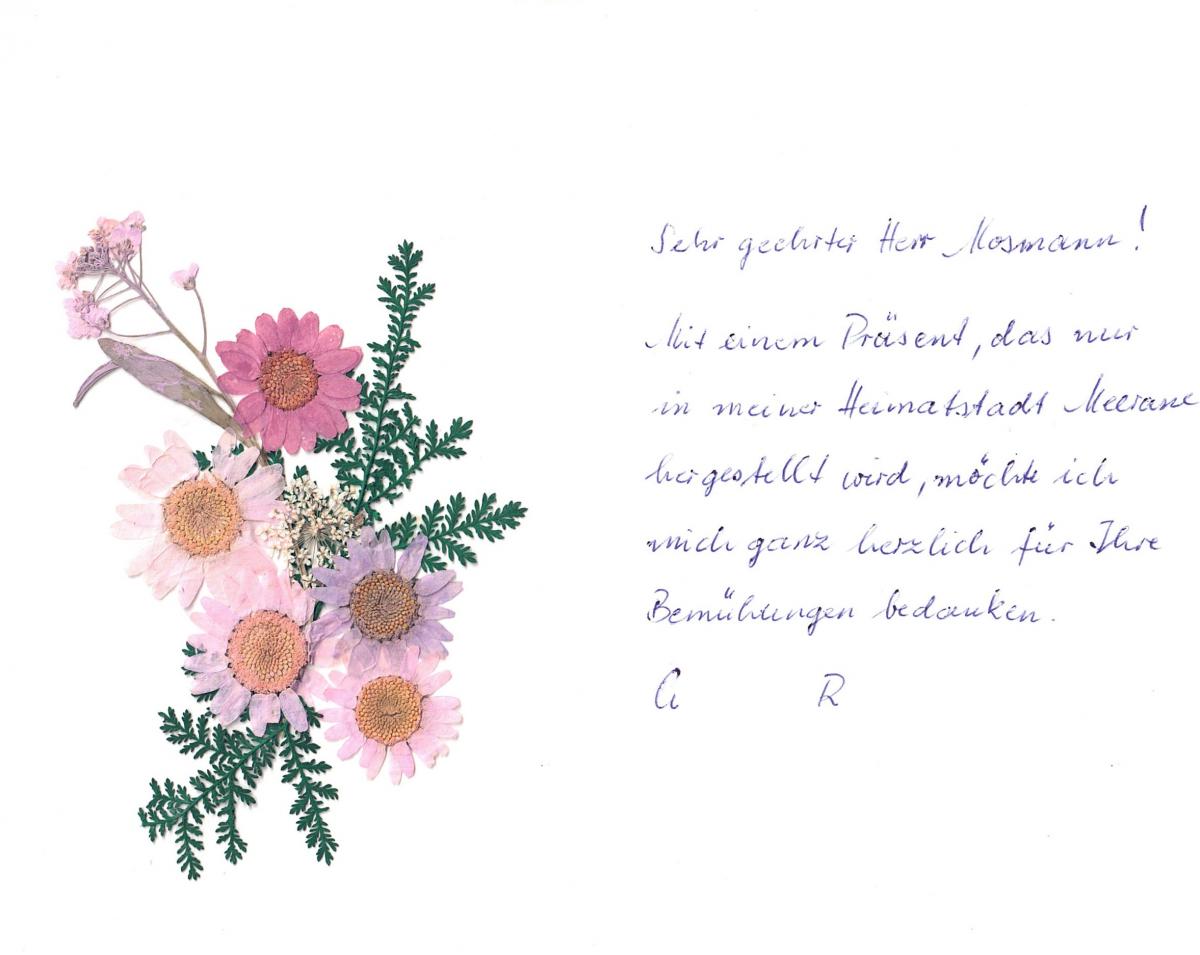 Sehr geehrter Herr Mosmann!
Mit einem Präsent, das nur
in meiner Heimatstadt Meerane
hergestellt wird, möchte ich
mich ganz herzlich für Ihre
Bemühungen bedanken.
G R